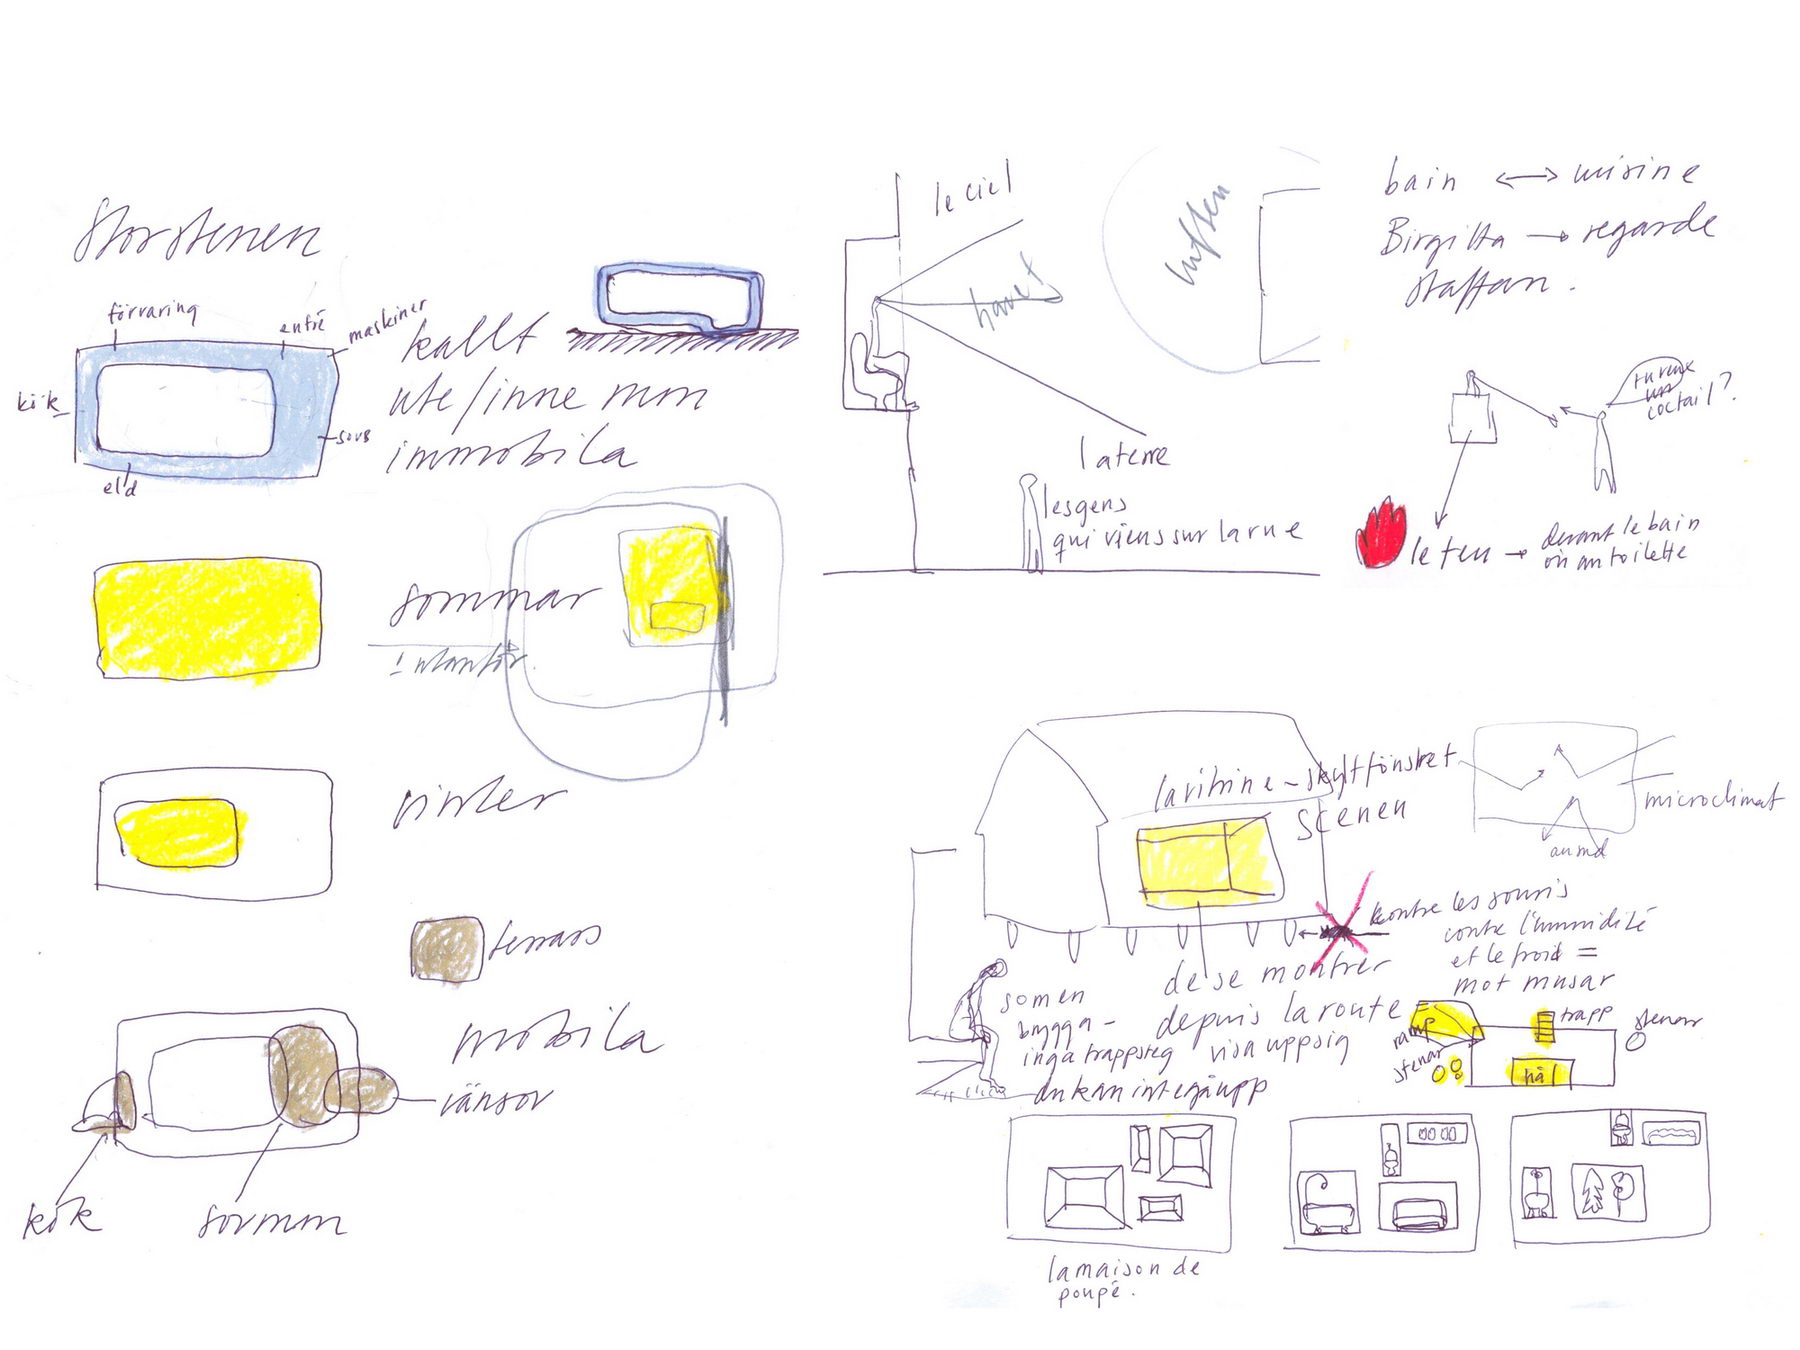 Storstenen
förvaring
entré
maskiner
kök
eld
kallt
ute/inne rum
immobila
sommar
vinter
terrass
mobila
vänsov
kök
sovrum
le ciel
havet
luften
la terre
les gens
qui viens sur la rue
bain ↔ cuisine
Birgitta → regarde
Staffan.
tu veux
un
coctail?
le feu → devant le bain
où au toilette
la vitrine – skyltfönstret
scenen
microclimat
au nord
contre les souris
contre l'humidité
et le froid =
mot musar
de se montrer
depuis la route
visa upp sig
som en
brygga –
inga trappsteg
du kan inte gå upp
ramp
stenar
trapp
stenar
hål
la maison de
poupé.